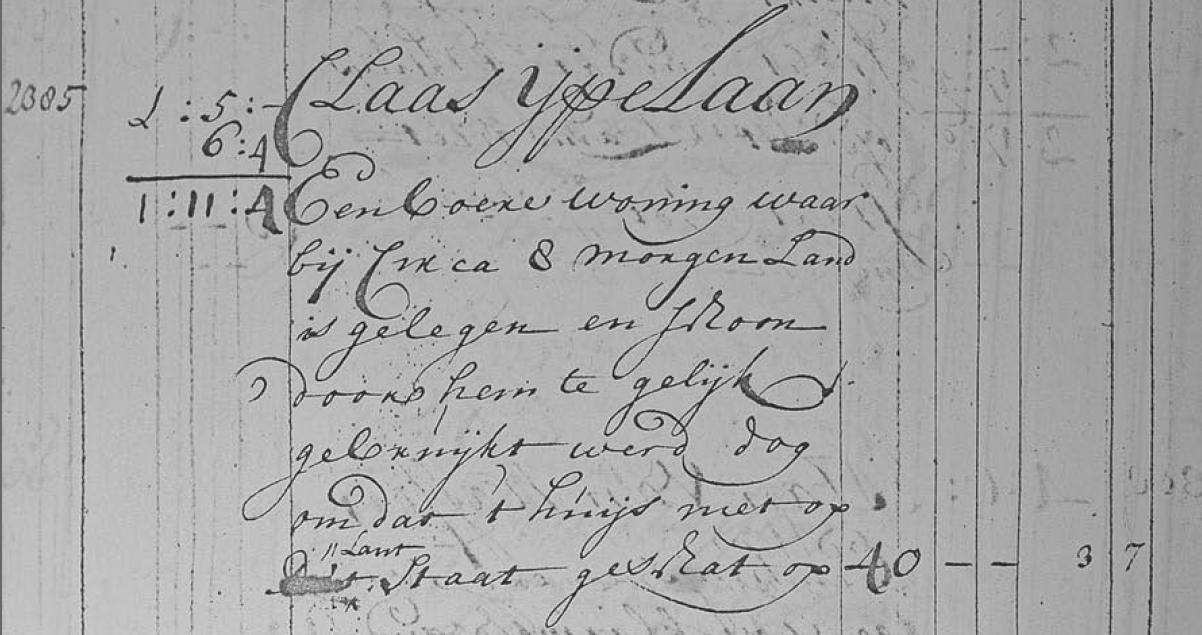 2085 1 : 5 : - Claas ijpelaan
6 : 4
1 : 11 : 4 Een boere woning waar
bij Circa 8 morgen Land
is gelegen en schoon
door hem te gelijk
gebruijkt werd dog
om dat 't huijs niet op
't Lant
Staat geschat op 40 - - 3 7